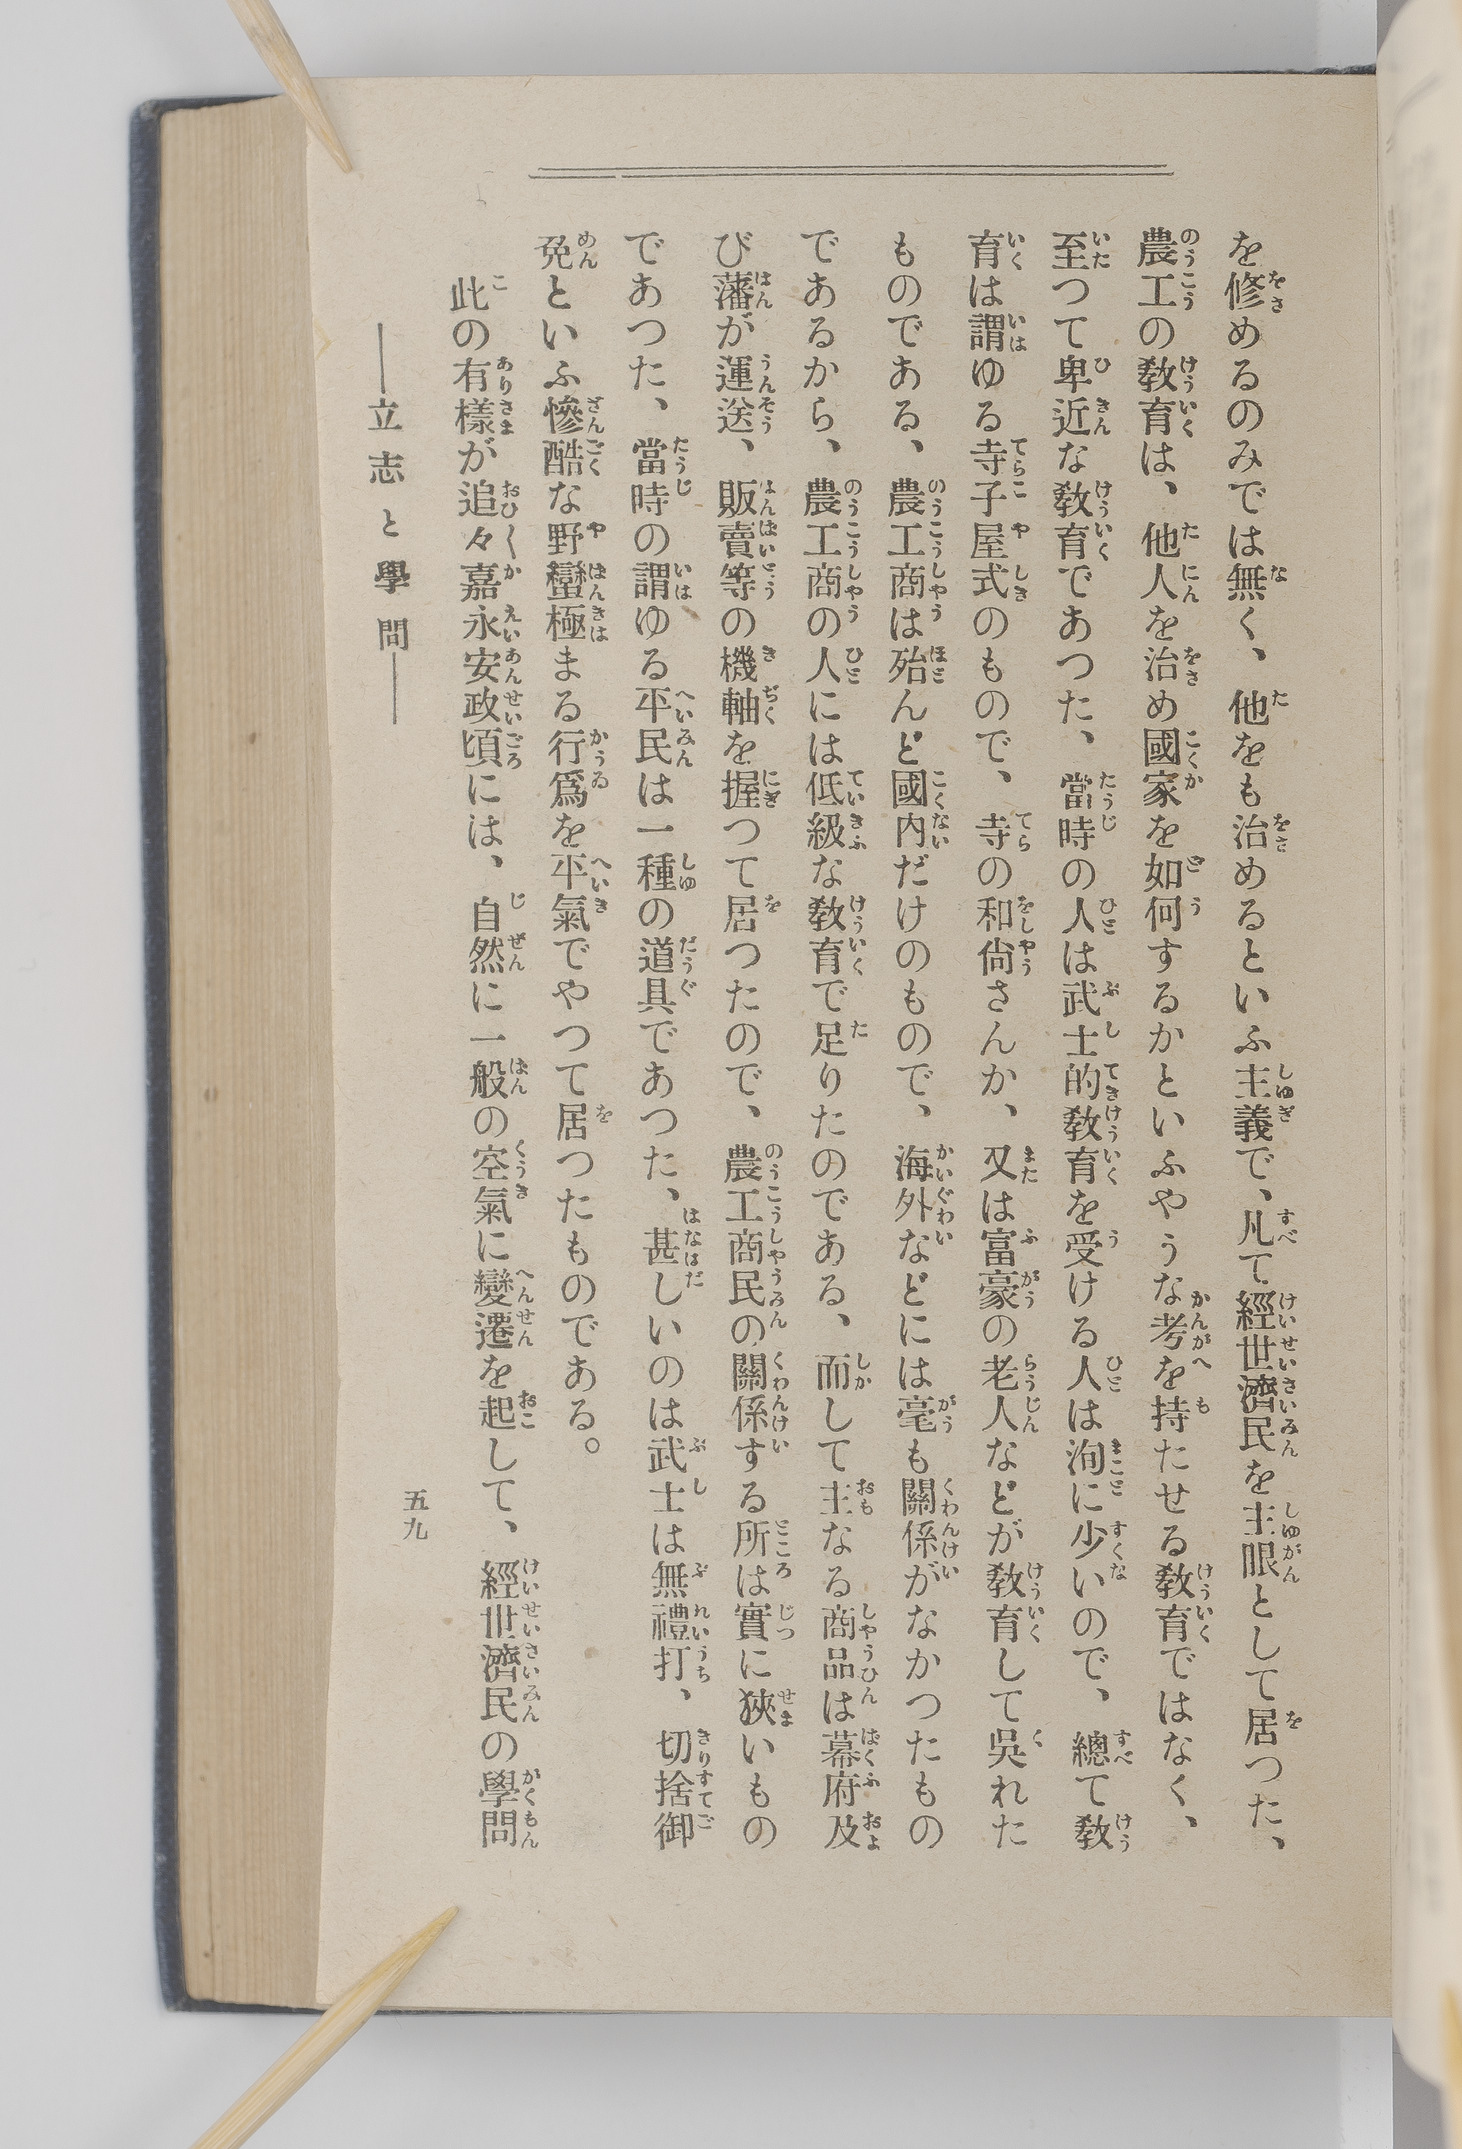 を修めるのみでは無く、他をも治めるといふ主義で、凡て經世濟民を主眼として居つた、
農工の敎育は、他人を治め國家を如何するかといふやうな考を持たせる敎育ではなく、
至つて卑近な敎育であつた、當時の人は武士的敎育を受ける人は洵に少いので、總て敎
育は謂ゆる寺子屋式のもので、寺の和尙さんか、又は富豪の老人などが敎育して吳れた
ものである、農工商は殆んど國內だけのもので、海外などには毫も關係がなかつたもの
であるから、農工商の人には低級な敎育で足りたのである、而して主なる商品は幕府及
び藩が運送、販賣等の機軸を握つて居つたので、農工商民の關係する所は實に狹いもの
であつた、當時の謂ゆる平民は一種の道具であつた、甚しいのは武士は無禮打、切捨御
免といふ慘酷な野蠻極まる行爲を平氣でやつて居つたものである。
此の有樣が追々嘉永安政頃には、自然に一般の空氣に變遷を起して、經世濟民の學問
―立志と學問―
五九